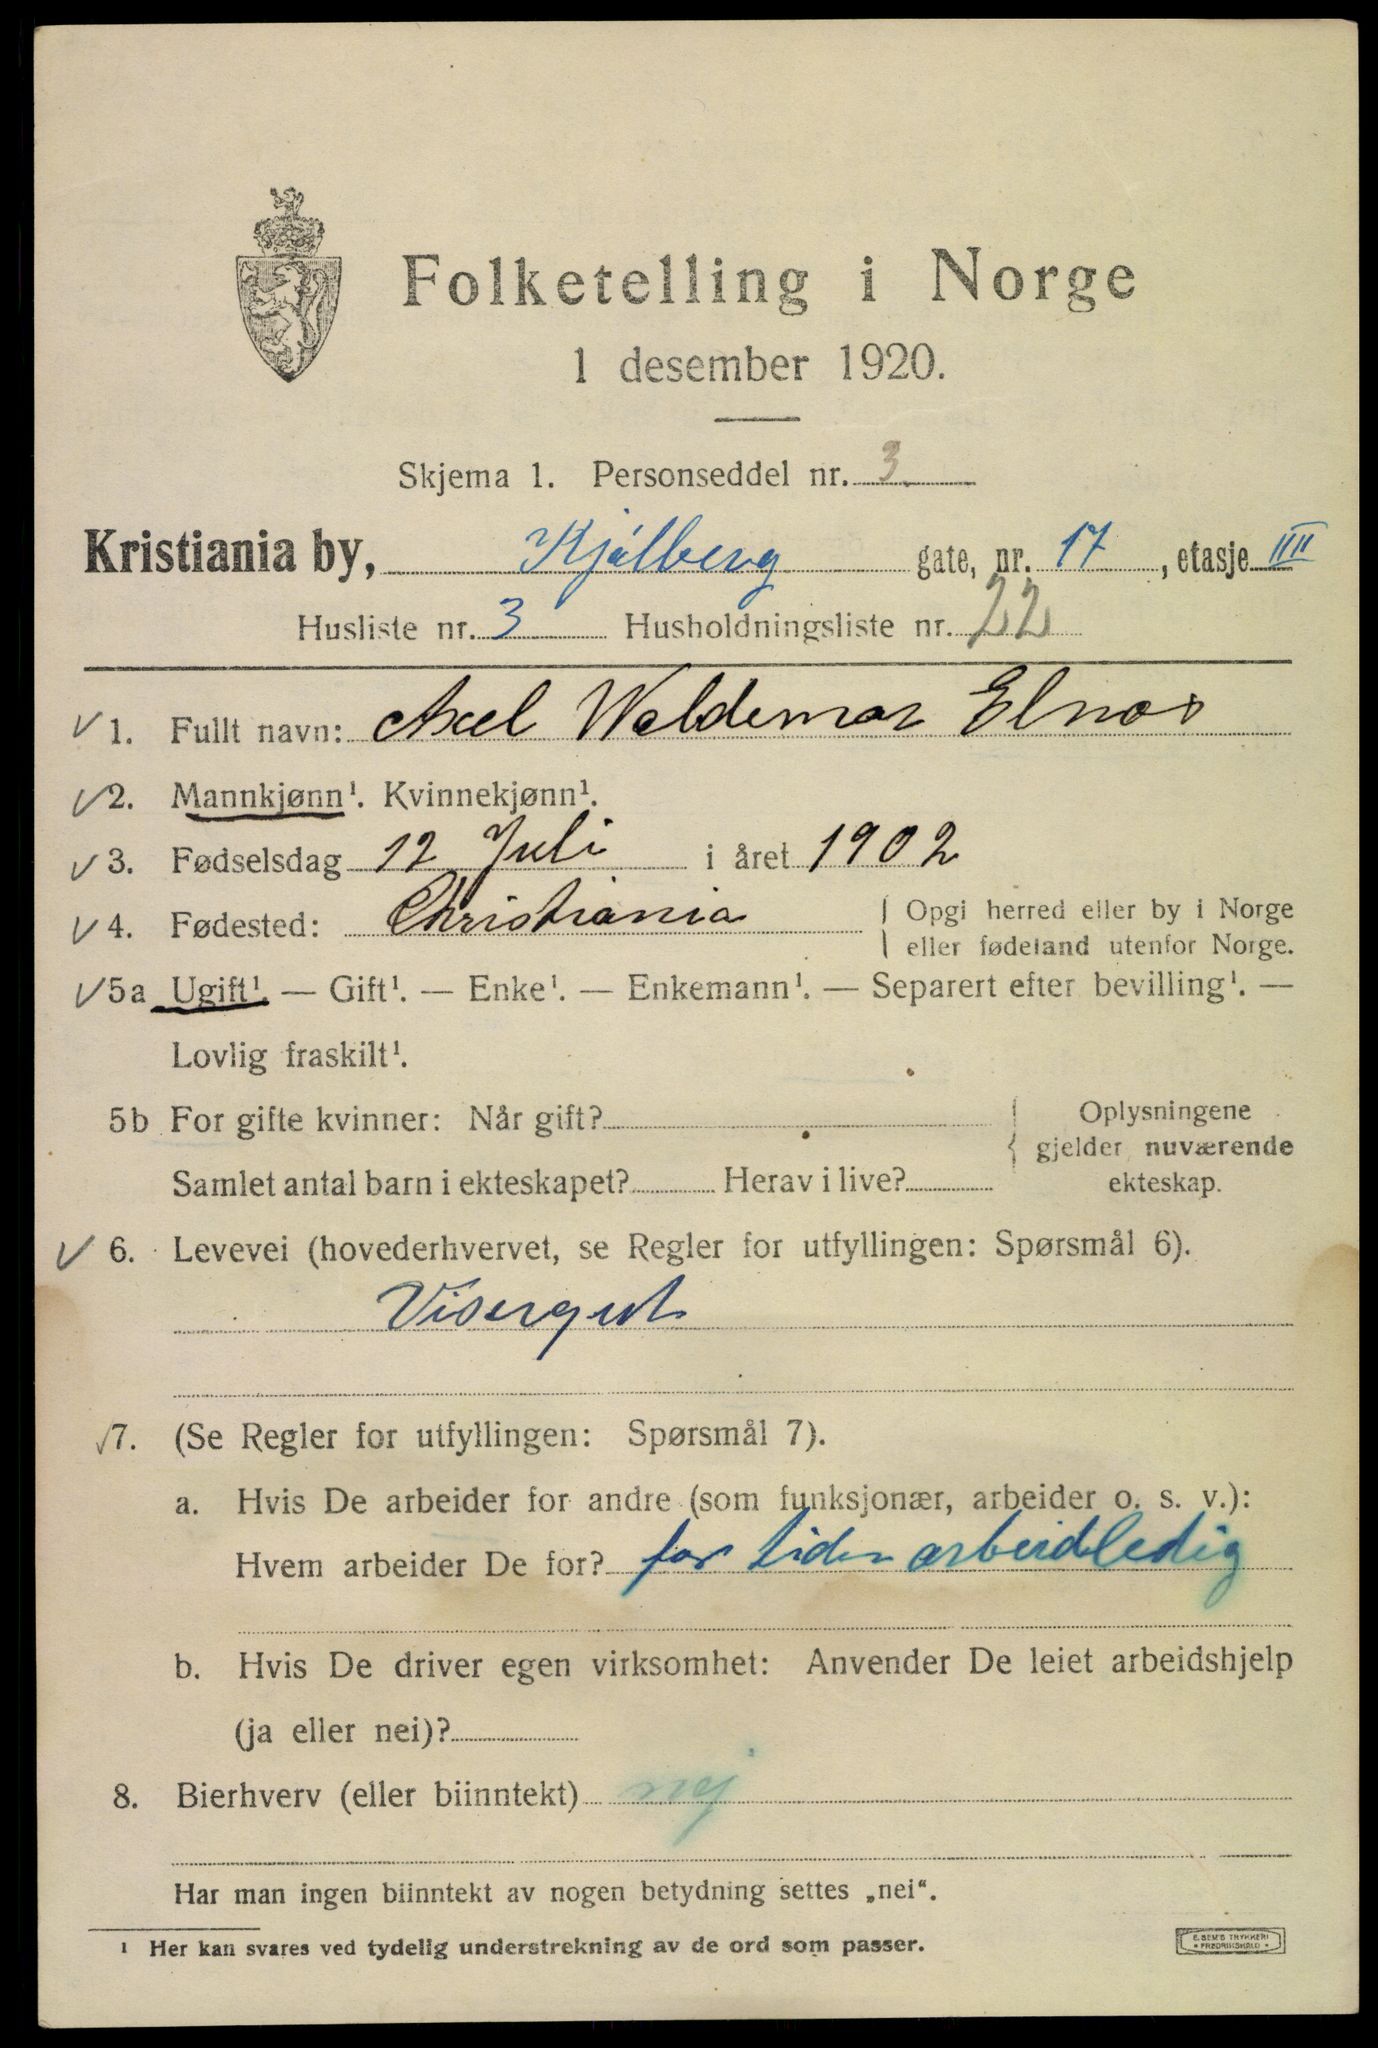 Folketelling i Norge
1 desember 1920.
Skjema 1. Personseddel nr. 3
Kristiania by, Kjølberg gate, nr. 17, etasje III
Husliste nr. 3 Husholdningsliste nr. 22
✓ 1. Fullt navn: Axel Waldemar Elnæs
✓ 2. Mannkjønn¹. Kvinnekjønn¹.
✓ 3. Fødselsdag 12 Juli i året 1902
✓ 4. Fødested: Christiania { Opgi herred eller by i Norge
eller fødeland utenfor Norge.
✓ 5a Ugift¹. — Gift¹. — Enke¹. — Enkemann¹. — Separert efter bevilling¹. —
Lovlig fraskilt¹.
5b For gifte kvinner: Når gift? { Oplysningene
gjelder nuværende
Samlet antal barn i ekteskapet? Herav i live? ekteskap.
✓ 6. Levevei (hovederhvervet, se Regler for utfyllingen: Spørsmål 6).
Visergut
✓ 7. (Se Regler for utfyllingen: Spørsmål 7).
a. Hvis De arbeider for andre (som funksjonær, arbeider o. s. v.):
Hvem arbeider De for? for tiden arbeidsledig
b. Hvis De driver egen virksomhet: Anvender De leiet arbeidshjelp
(ja eller nei)?
8. Bierhverv (eller biinntekt) nej
Har man ingen biinntekt av nogen betydning settes „nei“.
¹ Her kan svares ved tydelig understrekning av de ord som passer.
E. SEM'S TRYKKERI
• FREDRIKSHALD •